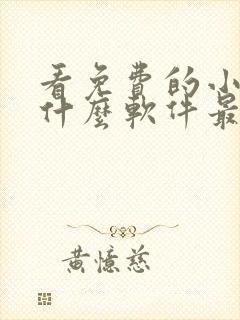 看免費的小
什麼軟件最
黃憶慈